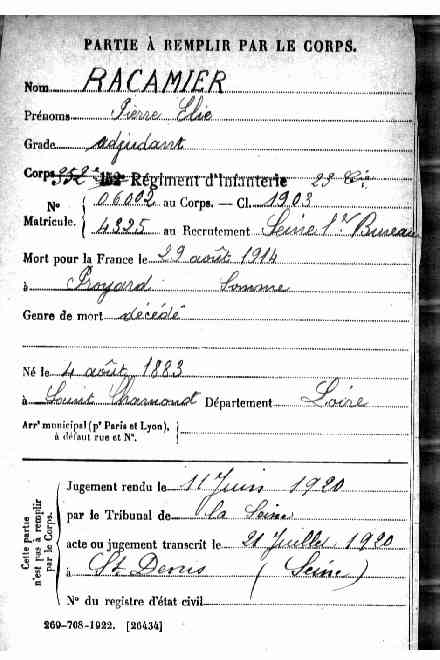 PARTIE À REMPLIR PAR LE CORPS.
Nom RACAMIER
Prénoms Pierre Elie
Grade adjudant
Corps 352e Régiment d'Infanterie 23 Cie
N° Matricule. { 06002 au Corps. — Cl. 1903
4325 au Recrutement Seine 1er Bureau
Mort pour la France le 29 août 1914
à Proyard Somme
Genre de mort décédé
Né le 4 août 1883
à Saint Chamond Département Loire
Arrt municipal (pr Paris et Lyon), à défaut rue et N°.
Cette partie n'est pas à remplir par le Corps.
Jugement rendu le 11 Juin 1920
par le Tribunal de la Seine
acte ou jugement transcrit le 21 Juillet 1920
à St Denis (Seine)
N° du registre d'état civil
269-708-1922. [26434]